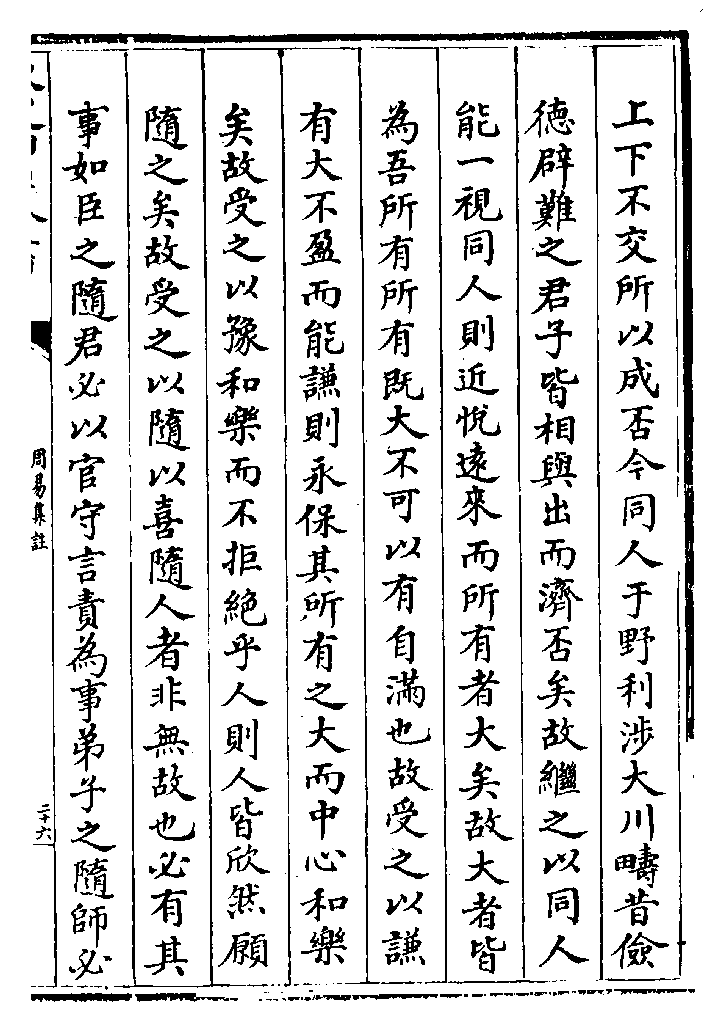 上下不交所以成否今同人于野利涉大川疇昔儉
德辟難之君子皆相與出而濟否矣故繼之以同人
能一視同人則近悅遠來而所有者大矣故大者皆
為吾所有所有既大不可以有自滿也故受之以謙
有大不盈而能謙則永保其所有之大而中心和樂
矣故受之以豫和樂而不拒絕乎人則人皆欣然願
隨之矣故受之以隨以喜隨人者非無故也必有其
事如臣之隨君必以官守言責為事弟子之隨師必
周易集註
二十六